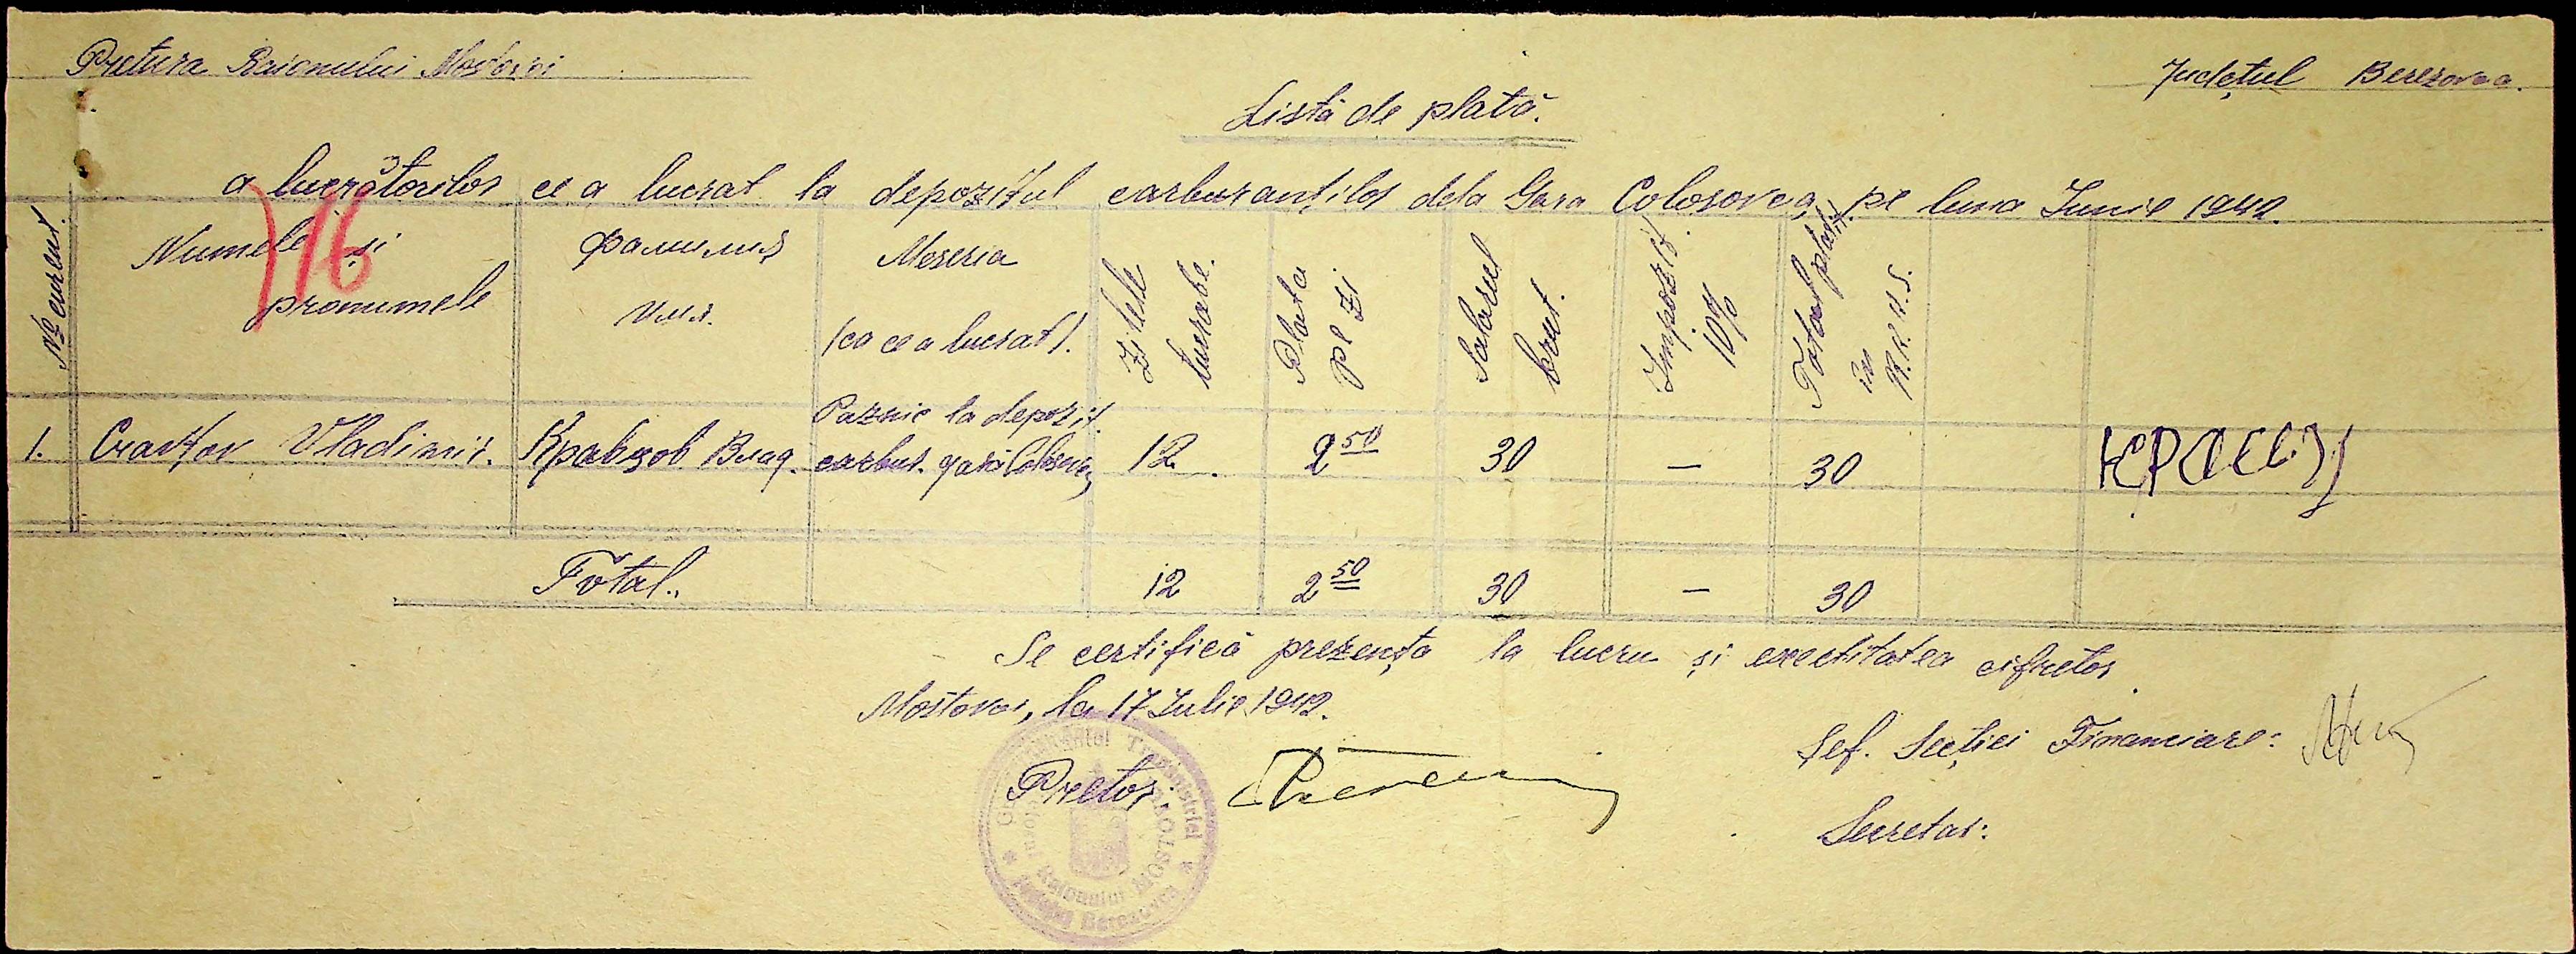 Pretura Raionului Mostovoi
Județul Berezovca.
Listă de plată.
a lucrătorilor ce a lucrat la depozitul carburanților dela Gara Colosovca, pe luna Iunie 1942.
16
№ curent.
Numele și
pronumele
Фамилия
имя.
Meseria
(ca ce a lucrat).
Zilele
lucrate.
Plata
pe zi
Salarul
brut.
Impozit.
10%
Total plătit
în
R.K.K.S.
1. Cravțov Vladimir. Кравцов Влад. Paznic la depozit.
carbur. gara Colosovca 12. 2 50 30 — 30
Total. 12 2 50 30 — 30
Se certifică prezența la lucru și exectitatea cifrelor.
Mostovoi, la 17 Iulie 1942.
Pretor:
Șef. Secției Financiare:
Secretar:
Transnistriei
Raionului MOSTOVOI